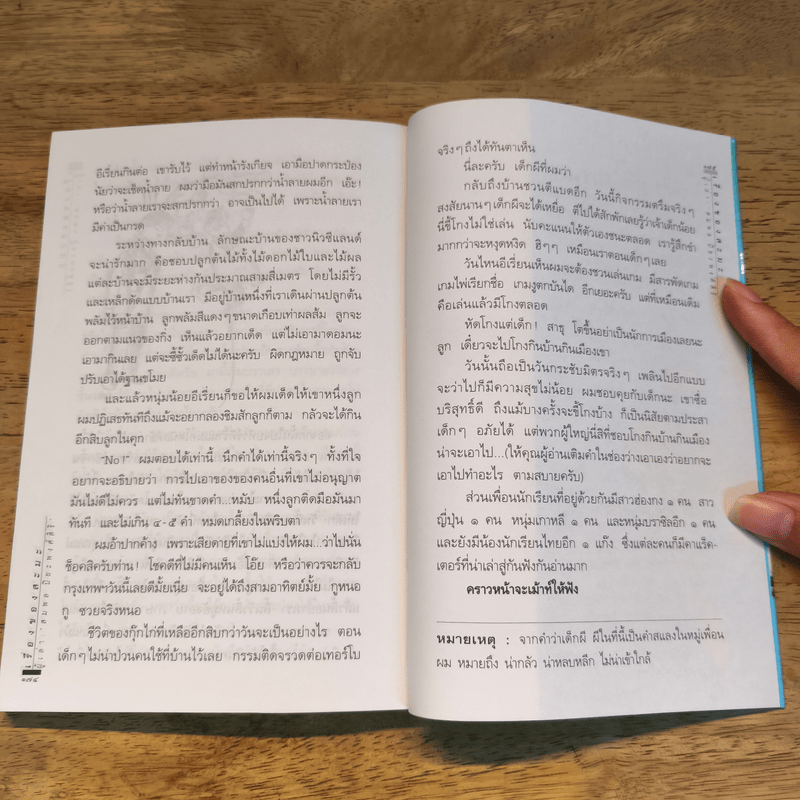 อีเรียนกินต่อ เขารับไว้ แต่ทำหน้ารังเกียจ เอามือปาดกระป๋อง
นัยว่าจะเช็ดน้ำลาย ผมว่ามือมันสกปรกกว่าน้ำลายผมอีก เอ๊ะ!
หรือว่าน้ำลายเราจะสกปรกกว่า อาจเป็นไปได้ เพราะน้ำลายเรา
มีค่าเป็นกรด
ระหว่างทางกลับบ้าน ลักษณะบ้านของชาวนิวซีแลนด์
จะน่ารักมาก คือชอบปลูกต้นไม้ทั้งไม้ดอกไม้ใบและไม้ผล
แต่ละบ้านจะมีระยะห่างกันประมาณสามสี่เมตร โดยไม่มีรั้ว
และเหล็กดัดแบบบ้านเรา มีอยู่บ้านหนึ่งที่เราเดินผ่านปลูกต้น
พลัมไว้หน้าบ้าน ลูกพลัมสีแดงๆขนาดเกือบเท่าผลส้ม ลูกจะ
ออกตามแนวของกิ่ง เห็นแล้วอยากเด็ด แต่ไม่เอามาดอมนะ
เอามากินเลย แต่จะซี้ซั้วเด็ดไม่ได้นะครับ ผิดกฎหมาย ถูกจับ
ปรับเอาได้ฐานขโมย
และแล้วหนุ่มน้อยอีเรียนก็ขอให้ผมเด็ดให้เขาหนึ่งลูก
ผมปฏิเสธทันทีถึงแม้จะอยากลองชิมสักลูกก็ตาม กลัวจะได้กิน
อีกสิบลูกในคุก
"No!" ผมตอบได้เท่านี้ นึกคำได้เท่านี้จริงๆ ทั้งที่ใจ
อยากจะอธิบายว่า การไปเอาของของคนอื่นที่เขาไม่อนุญาต
มันไม่ดีไม่ควร แต่ไม่ทันขาดคำ...หมับ หนึ่งลูกติดมือมันมา
ทันที และไม่เกิน ๔-๕ คำ หมดเกลี้ยงในพริบตา
ผมอ้าปากค้าง เพราะเสียดายที่เขาไม่แบ่งให้ผม...ว่าไปนั่น
ช็อคสิครับท่าน! โชคดีที่ไม่มีคนเห็น โอ๊ย หรือว่าควรจะกลับ
กรุงเทพฯวันนี้เลยดีมั้ยเนี่ย จะอยู่ได้ถึงสามอาทิตย์มั้ย กูหนอ
กู ซวยจริงหนอ
ชีวิตของกุ๊กไก่ที่เหลืออีกสิบกว่าวันจะเป็นอย่างไร ตอน
เด็กๆไม่น่าป่วนคนใช้ที่บ้านไว้เลย กรรมติดจรวดต่อเทอร์โบ
เรื่องของสะมะ
๑๗๔
จริงๆถึงได้ทันตาเห็น
นี่ละครับ เด็กผีที่ผมว่า
กลับถึงบ้านชวนตีแบดอีก วันนี้กิจกรรมตรึมจริงๆ
สงสัยนานๆเด็กผีจะได้เหยื่อ ตีไปได้สักพักเลยรู้ว่าเจ้าเด็กน้อย
นี่ขี้โกงไม่ใช่เล่น นับคะแนนให้ตัวเองชนะตลอด เรารู้สึกขำ
มากกว่าจะหงุดหงิด ฮิๆๆ เหมือนเราตอนเด็กๆเลย
วันไหนอีเรียนเห็นผมจะต้องชวนเล่นเกม มีสารพัดเกม
เกมไพ่เรียกชื่อ เกมงูตกบันได อีกเยอะครับ แต่ที่เหมือนเดิม
คือเล่นแล้วมีโกงตลอด
หัดโกงแต่เด็ก! สาธุ โตขึ้นอย่าเป็นนักการเมืองเลยนะ
ลูก เดี๋ยวจะไปโกงกินบ้านกินเมืองเขา
วันนั้นถือเป็นวันกระชับมิตรจริงๆ เพลินไปอีกแบบ
จะว่าไปก็มีความสุขไม่น้อย ผมชอบคุยกับเด็กนะ เขาซื่อ
บริสุทธิ์ดี ถึงแม้บางครั้งจะขี้โกงบ้าง ก็เป็นนิสัยตามประสา
เด็กๆ อภัยได้ แต่พวกผู้ใหญ่นี่สิที่ชอบโกงกินบ้านกินเมือง
น่าจะเอาไป...(ให้คุณผู้อ่านเติมคำในช่องว่างเอาเองว่าอยากจะ
เอาไปทำอะไร ตามสบายครับ)
ส่วนเพื่อนนักเรียนที่อยู่ด้วยกันมีสาวฮ่องกง ๑ คน สาว
ญี่ปุ่น ๑ คน หนุ่มเกาหลี ๑ คน และหนุ่มบราซิลอีก ๑ คน
และยังมีน้องนักเรียนไทยอีก ๑ แก๊ง ซึ่งแต่ละคนก็มีคาแร็ค-
เตอร์ที่น่าเล่าสู่กันฟังกันอ่านมาก
คราวหน้าจะเม้าท์ให้ฟัง
หมายเหตุ : จากคำว่าเด็กผี ผีในที่นี้เป็นคำสแลงในหมู่เพื่อน
ผม หมายถึง น่ากลัว น่าหลบหลีก ไม่น่าเข้าใกล้